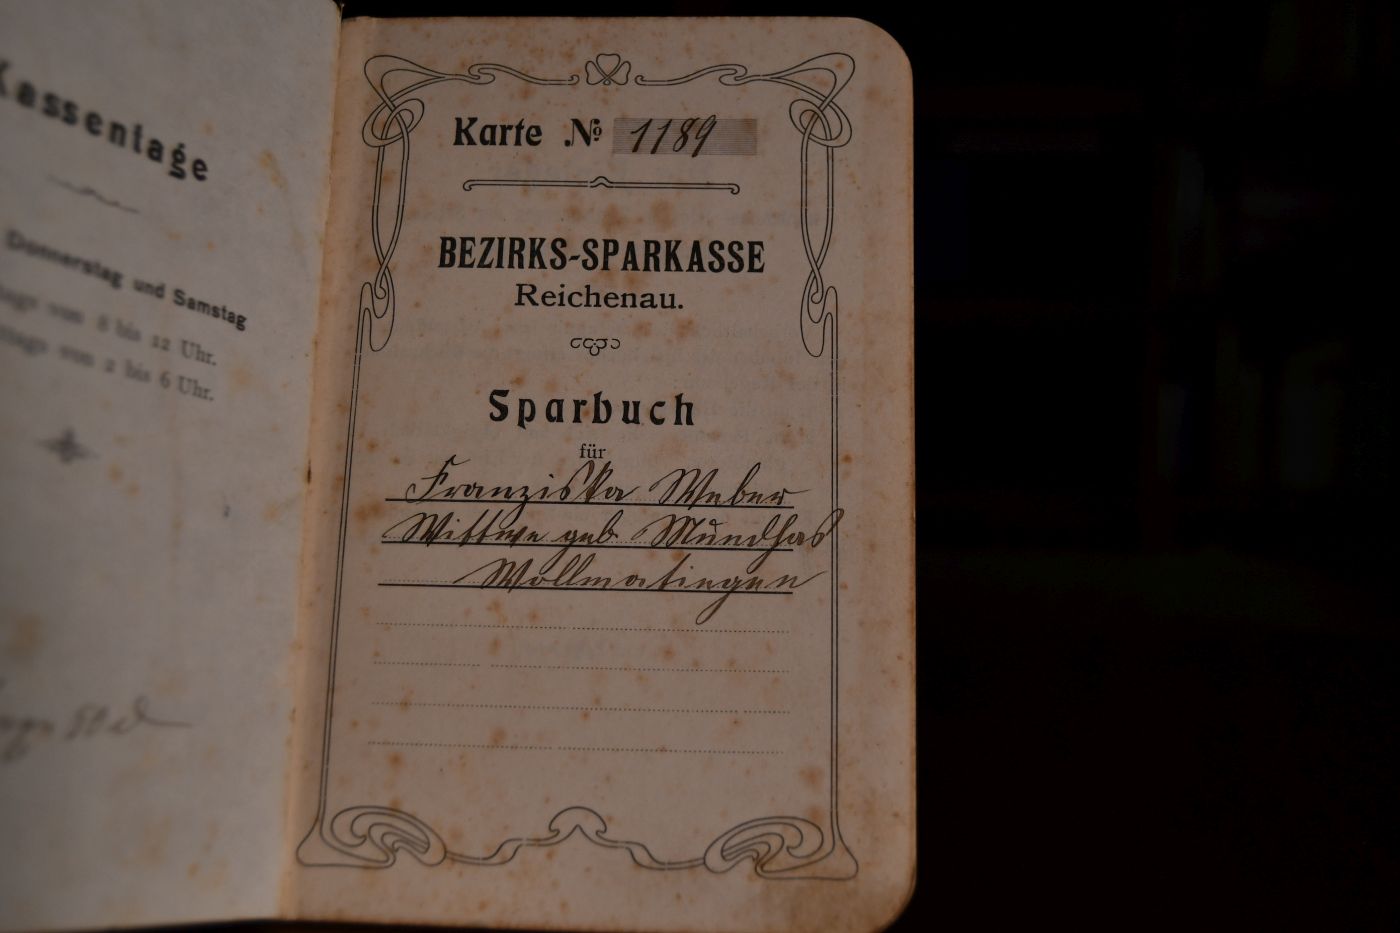 Kassentage
Donnerstag und Samstag
von 8 bis 12 Uhr.
von 2 bis 6 Uhr.
Karte No 1189
BEZIRKS-SPARKASSE
Reichenau.
Sparbuch
für
Franziska Weber
Wittwe geb Mundhas
Wollmatingen